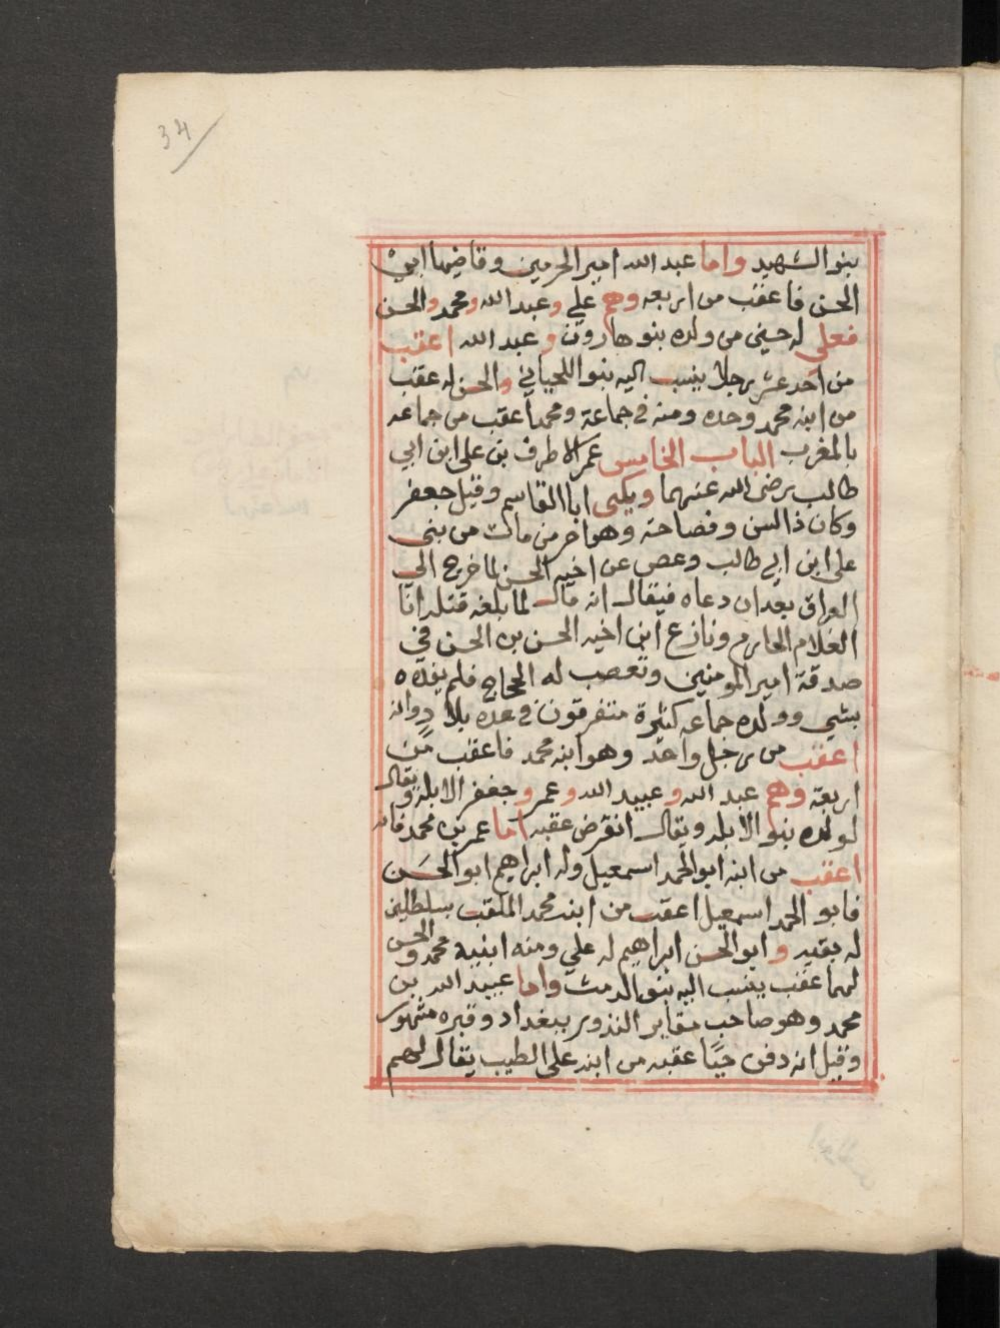 34
بنو الشهيد واما عبد الله امير الحرمين وقاضيها ابن
الحسن فاعقب من اربعه وهم علي وعبد الله ومحمد والحسن
فعلي له حسني من ولده بنو هارون وعبد الله اعقب
من احد عشر رجلا ينسب اليه بنو اللحياني والحسن له عقب
من ابنه محمد وحده ومنه في جماعة ومحمد اعقب من جماعه
بالمغرب الباب الخامس عمر الاطرف بن على ابن ابي
طالب رضى الله عنهما ويكنى ابا القاسم وقيل جعفر
وكان ذا لسن وفصاحة وهو اخر من مات من بني
على ابن ابي طالب وعصى عن اخيه الحسن لما خرج الي
العراق بعد ان دعاه فيقال انه قال لما بلغه قتله انا
الغلام الحازم ونازع ابن اخيه الحسن بن الحسن في
صدقة امير المومنين وتعصب له الحجاج فلم يفده
بشي وولده جماعه كثيرة متفرقون في عده بلاد وانه
اعقب من رجل واحد وهو ابنه محمد فاعقب من
اربعة وهم عبد الله وعبيد الله وعمر وجعفر الابله ويقال
لولده بنو الابله ويقال انقرض عقبه اما عمر بن محمد فانه
اعقب من ابنه ابو الحمد اسمعيل وله ابراهيم ابو الحسن
فابو الحمد اسمعيل اعقب من ابنه محمد الملقب بسلطلين
له بقيه وابو الحسن ابراهيم له علي ومنه ابنيه محمد والحسن
لهما عقب ينسب اليه بنو الدمث واما عبيد الله بن
محمد وهو صاحب مقابر النذور ببغداد وقبره مشهور
وقيل انه دفن حيًا عقبه من ابنه على الطيب يقال لهم